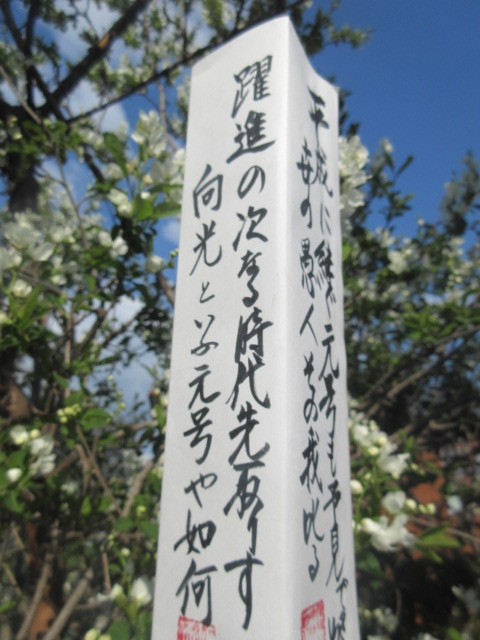 躍進の次なる時代先ありす
向光という元号や如何
平成に継ぐ元号も予見や
愚人なの我比る